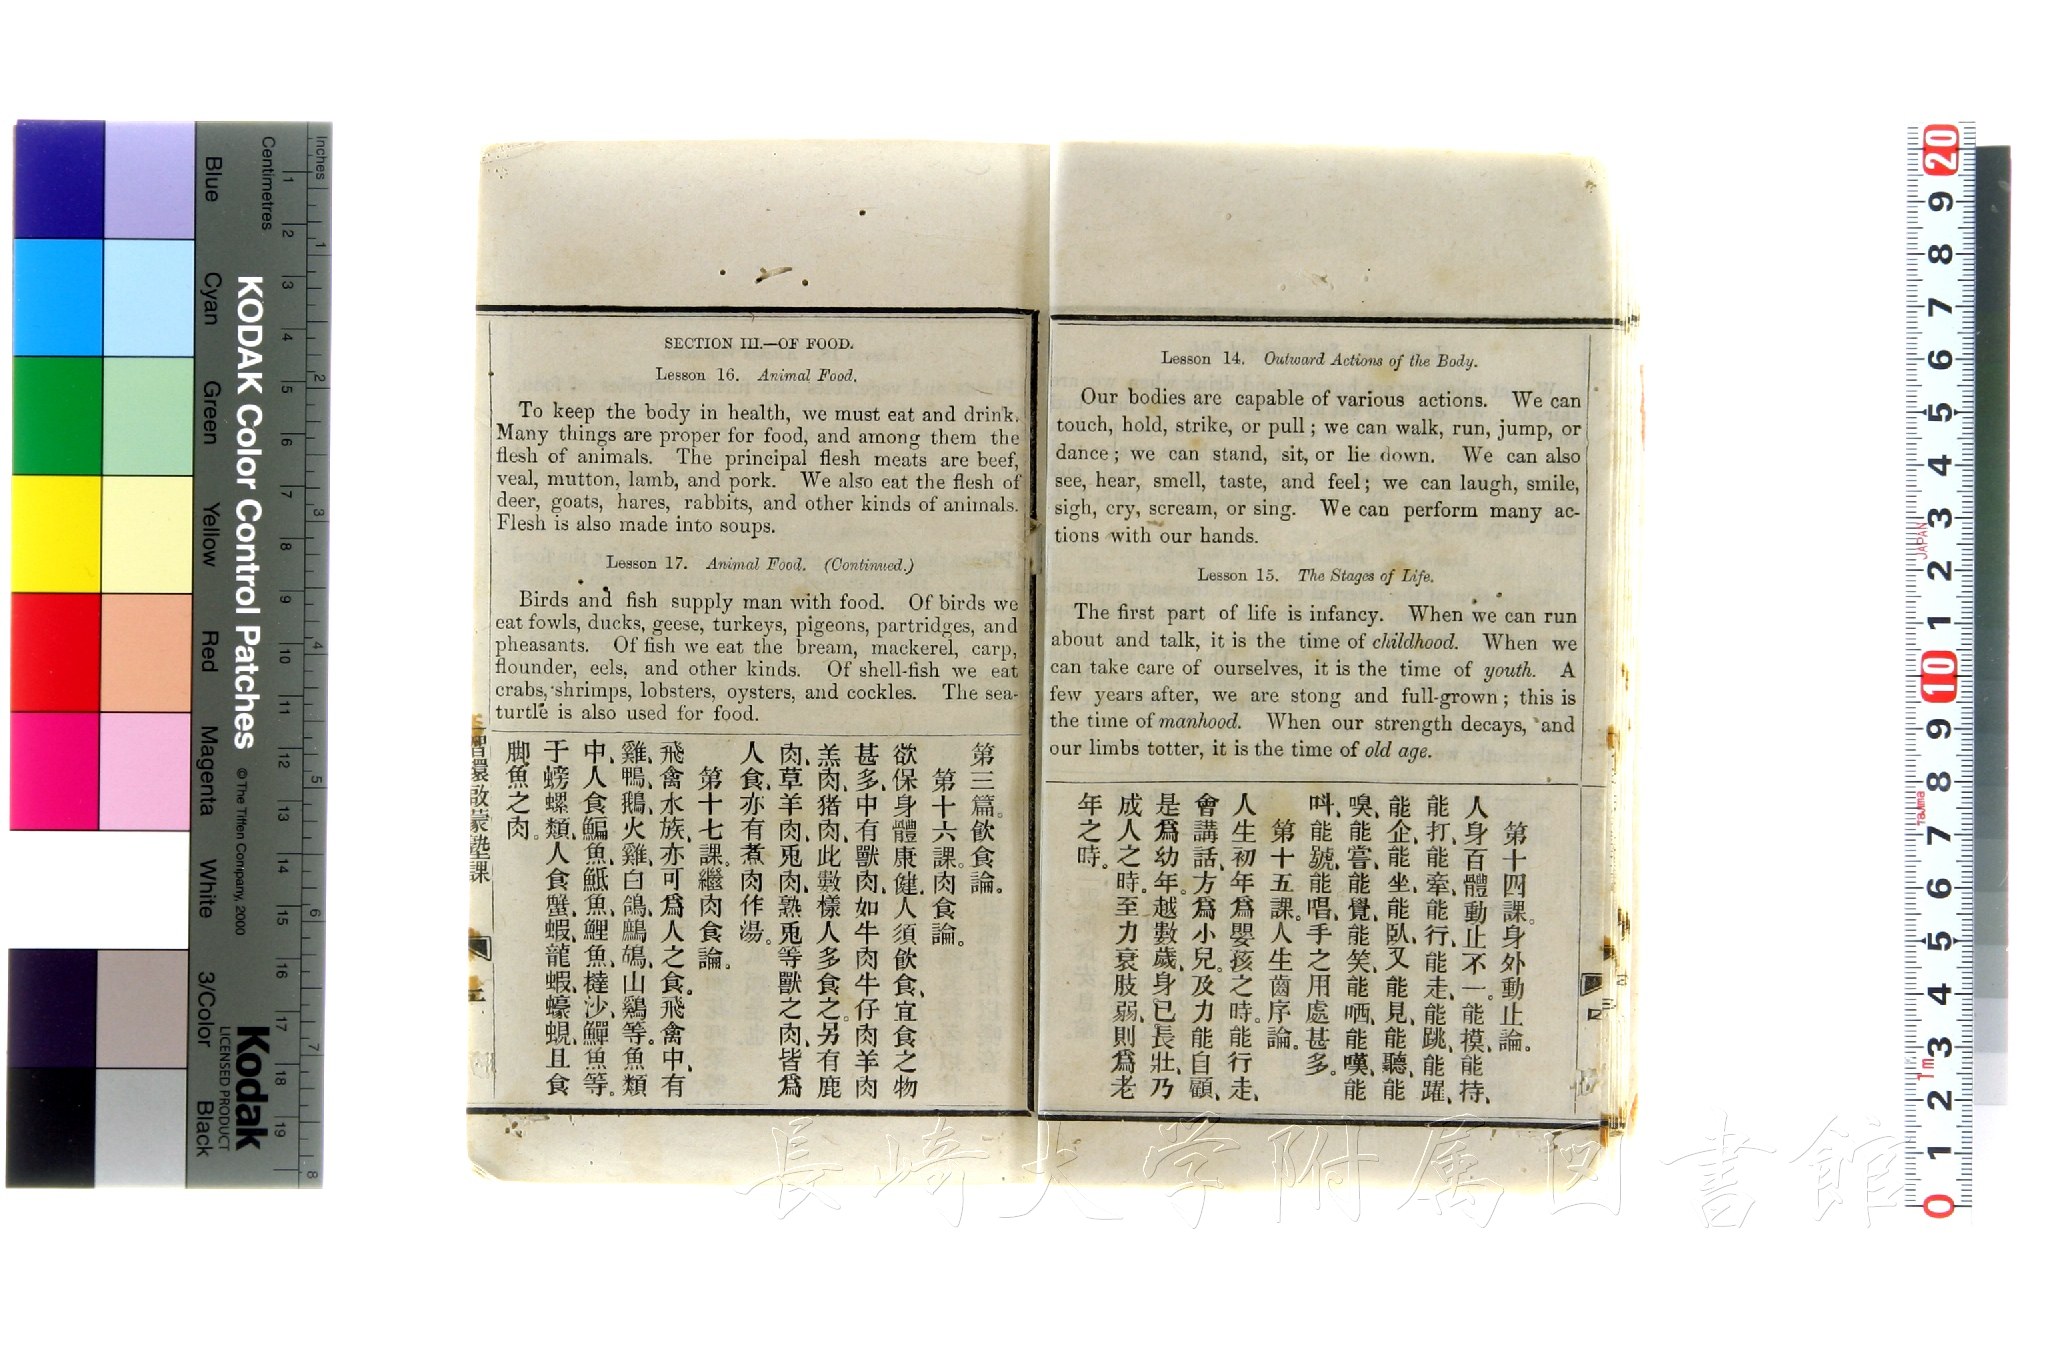 Lesson 14. Outward Actions of the Body.
Our bodies are capable of various actions. We can
touch, hold, strike, or pull; we can walk, run, jump, or
dance; we can stand, sit, or lie down. We can also
see, hear, smell, taste, and feel; we can laugh, smile,
sigh, cry, scream, or sing. We can perform many ac-
tions with our hands.
Lesson 15. The Stages of Life.
The first part of life is infancy. When we can run
about and talk, it is the time of childhood. When we
can take care of ourselves, it is the time of youth. A
few years after, we are stong and full-grown; this is
the time of manhood. When our strength decays, and
our limbs totter, it is the time of old age.
第十四課。身外動止論。
人身百體動止不一。能摸、能持、
能打、能牽、能行、能走、能跳、能躍、
能企、能坐、能臥、又能見、能聽、能
嗅、能嘗、能覺、能笑、能哂、能嘆、能
呌、能號、能唱、手之用處甚多。
第十五課。人生齒序論。
人生初年爲嬰孩之時。能行走、
會講話、方爲小兒。及力能自顧、
是爲幼年。越數歲、身已長壯、乃
成人之時。至力衰肢弱、則爲老
年之時。
SECTION III.—OF FOOD.
Lesson 16. Animal Food.
To keep the body in health, we must eat and drink.
Many things are proper for food, and among them the
flesh of animals. The principal flesh meats are beef,
veal, mutton, lamb, and pork. We also eat the flesh of
deer, goats, hares, rabbits, and other kinds of animals.
Flesh is also made into soups.
Lesson 17. Animal Food. (Continued.)
Birds and fish supply man with food. Of birds we
eat fowls, ducks, geese, turkeys, pigeons, partridges, and
pheasants. Of fish we eat the bream, mackerel, carp,
flounder, eels, and other kinds. Of shell-fish we eat
crabs, shrimps, lobsters, oysters, and cockles. The sea-
turtle is also used for food.
第三篇。飲食論。
第十六課。肉食論。
欲保身體康健、人須飲食、宜食之物
甚多、中有獸肉、如牛肉牛仔肉羊肉
羔肉、猪肉、此數樣人多食之。另有鹿
肉、草羊肉、兎肉、熟兎等獸之肉、皆爲
人食、亦有煮肉作湯。
第十七課。繼肉食論。
飛禽水族、亦可爲人之食。飛禽中、有
雞、鴨、鵝、火雞、白鴿、鷓鴣、山鷄等。魚類
中、人食鯿魚、魠魚、鯉魚、撻沙、鱓魚等。
于螃螺類、人食蟹、蝦、龍蝦、蠔、蜆、且食
脚魚之肉。
智環啟蒙塾課
KODAK Color Control Patches
© The Tiffen Company, 2000
Kodak
LICENSED PRODUCT
Inches
Centimetres
1 2 3 4 5 6 7 8 9 10 11 12 13 14 15 16 17 18 19
1 2 3 4 5 6 7 8
Blue
Cyan
Green
Yellow
Red
Magenta
White
3/Color
Black
20 9 8 7 6 5 4 3 2 1 10 9 8 7 6 5 4 3 2 1 0
JAPAN
Tajima
1m
長崎大学附属図書館